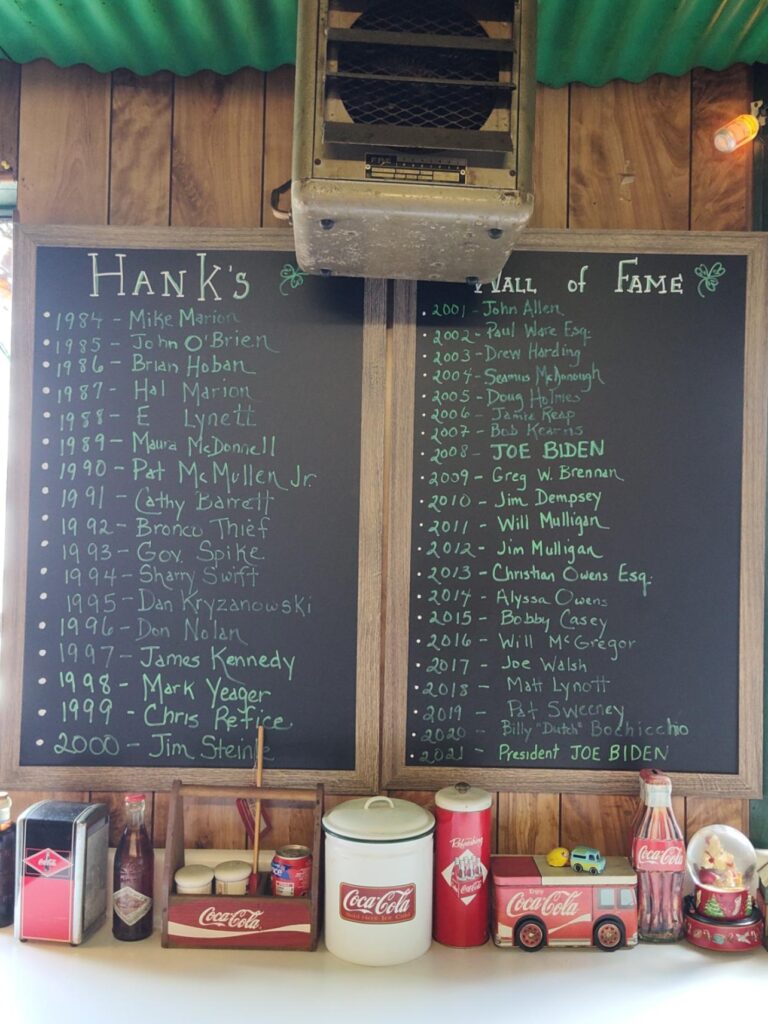 HANK'S
1984 - Mike Marion
1985 - John O'Brien
1986 - Brian Hoban
1987 - Hal Marion
1988 - E Lynett
1989 - Maura McDonnell
1990 - Pat McMullen Jr.
1991 - Cathy Barrett
1992 - Bronco Thief
1993 - Gov. Spike
1994 - Sharry Swift
1995 - Dan Kryzanowski
1996 - Don Nolan
1997 - James Kennedy
1998 - Mark Yeager
1999 - Chris Refice
2000 - Jim Steinle
WALL of FAME
2001 - John Allen
2002 - Paul Ware Esq.
2003 - Drew Harding
2004 - Seamus McDonough
2005 - Doug Holmes
2006 - Jamie Reap
2007 - Bob Kearns
2008 - JOE BIDEN
2009 - Greg W. Brennan
2010 - Jim Dempsey
2011 - Will Mulligan
2012 - Jim Mulligan
2013 - Christian Owens Esq.
2014 - Alyssa Owens
2015 - Bobby Casey
2016 - Will McGregor
2017 - Joe Walsh
2018 - Matt Lynott
2019 - Pat Sweeney
2020 - Billy "Dutch" Bochicchio
2021 - President JOE BIDEN
Coca-Cola
Coca-Cola
Coca-Cola
Refreshing
Coca-Cola
Coca-Cola
Coca-Cola